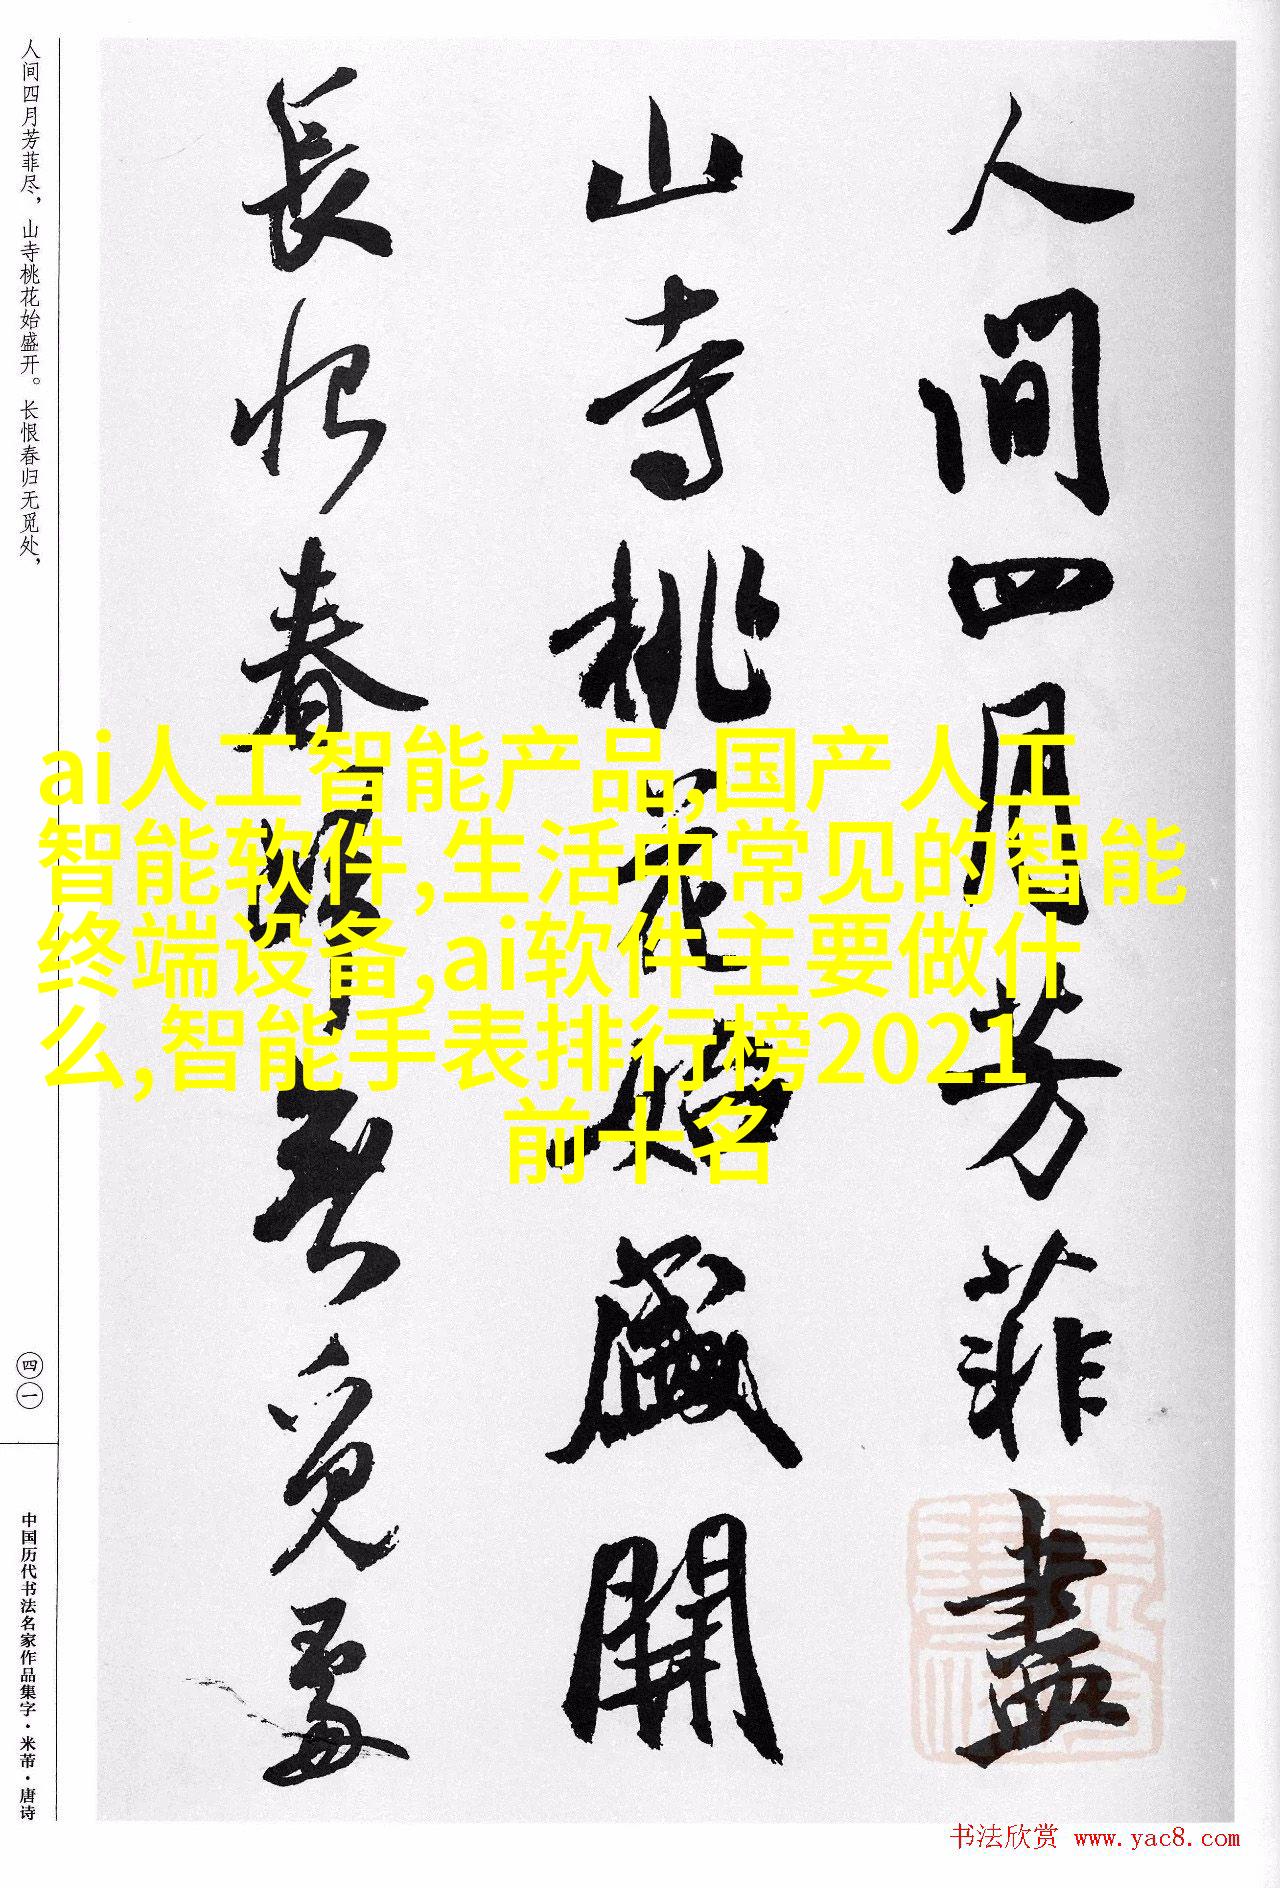 人间四月芳菲尽，山寺桃花始盛开。长恨春归无觅处，
人間四月芳菲盡
山寺桃花始盛開
長恨春歸無覓處
ai人工智能产品,国产人工
智能软件,生活中常见的智能
终端设备,ai软件主要做什
么,智能手表排行榜2021
前十名
四一
中国历代书法名家作品集字·米芾·唐诗
书法欣赏 www.yac8.com